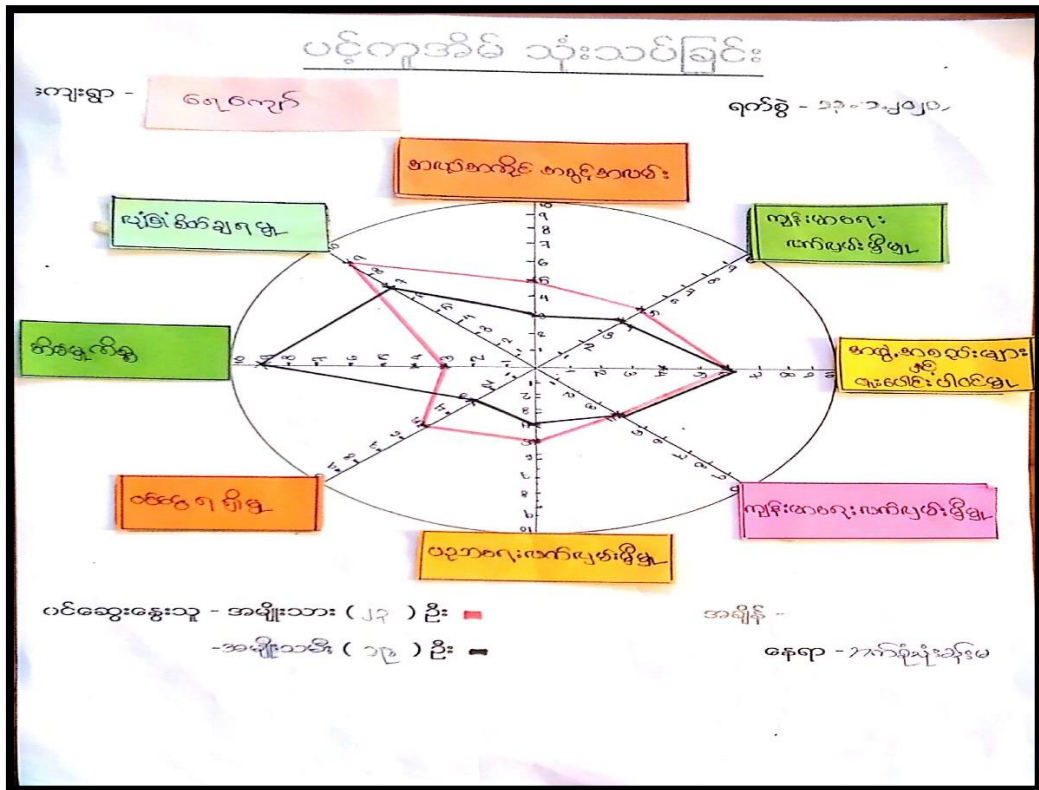 ပင့်ကူအိမ် သုံးသပ်ခြင်း
ကျေးရွာ - ရေကျော်
ရက်စွဲ - ၁၃.၁.၂၀၂၀
အလုပ်အကိုင် အခွင့်အလမ်း
လုံခြုံစိတ်ချရမှု
ကျန်းမာရေး
လက်လှမ်းမှီမှု
အိမ်မှုကိစ္စ
အဖွဲ့အစည်းများ
နှင့်
ပူးပေါင်းပါဝင်မှု
ဝင်ငွေရရှိမှု
ကျန်းမာရေးလက်လှမ်းမှီမှု
ပညာရေးလက်လှမ်းမှီမှု
ပင်ဆွေးနွေးသူ - အမျိုးသား ( ၂၃ ) ဦး
အချိန် -
-အမျိုးသမီး ( ၁၉ ) ဦး
နေရာ -